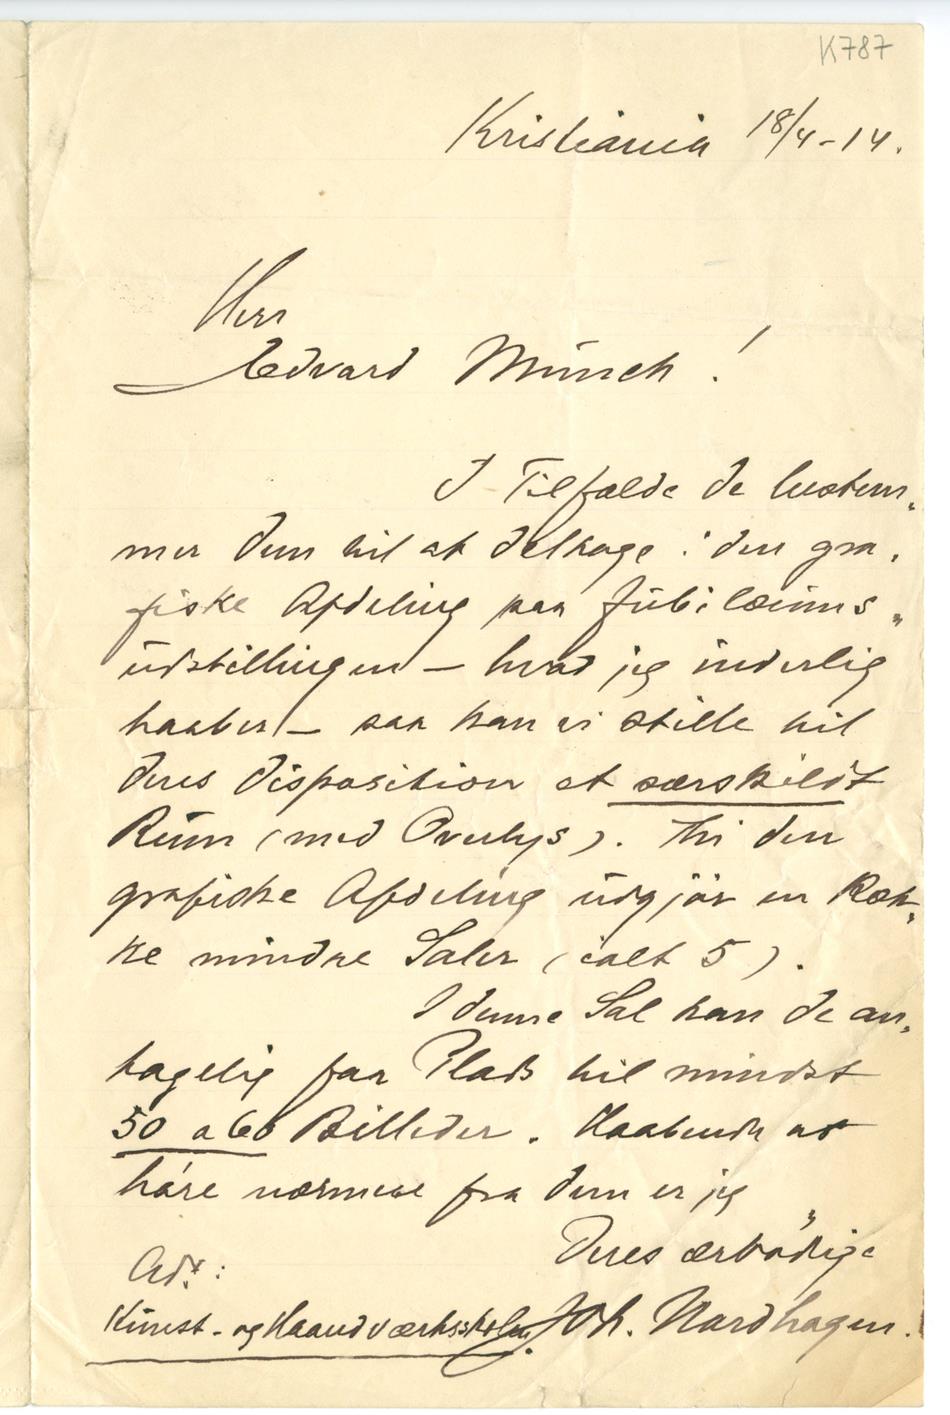 K787
Kristiania 18/4-14.
Herr
Edvard Münch!
I Tilfælde De bestem„
mer Dem til at deltage i den gra„
fiske Afdeling paa Jubilæums„
udstillingen – hvad jeg inderlig
haaber – saa kan vi stille til
Deres Disposition et særskildt
Rum (med Overlys). Thi den
grafiske Afdeling udgjör en Ræk„
ke mindre Saler (ialt 5).
I denne Sal kan De an„
tagelig faa Plads til mindst
50 a 60 Billeder. Haabende at
höre nærmere fra Dem er jeg
Deres ærbödige
Joh. Nordhagen.
Adr:
Kunst- og Haandværksskolen.